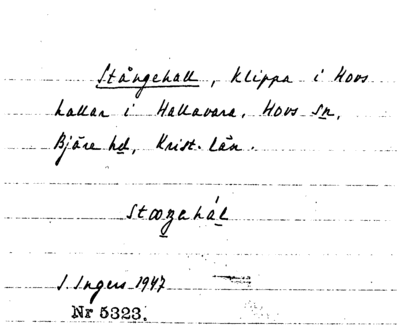 Stångehall, klippa i Hovs
hallar i Hallavara, Hovs sn,
Bjäre hd, Krist. län.
I. Ingers 1947
Nr 5323.